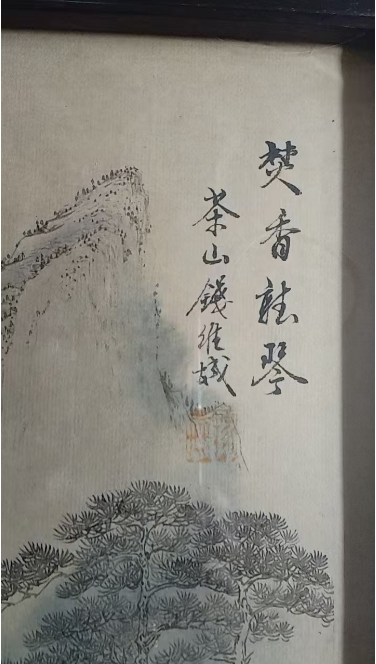 焚香聽琴
茶山錢維城